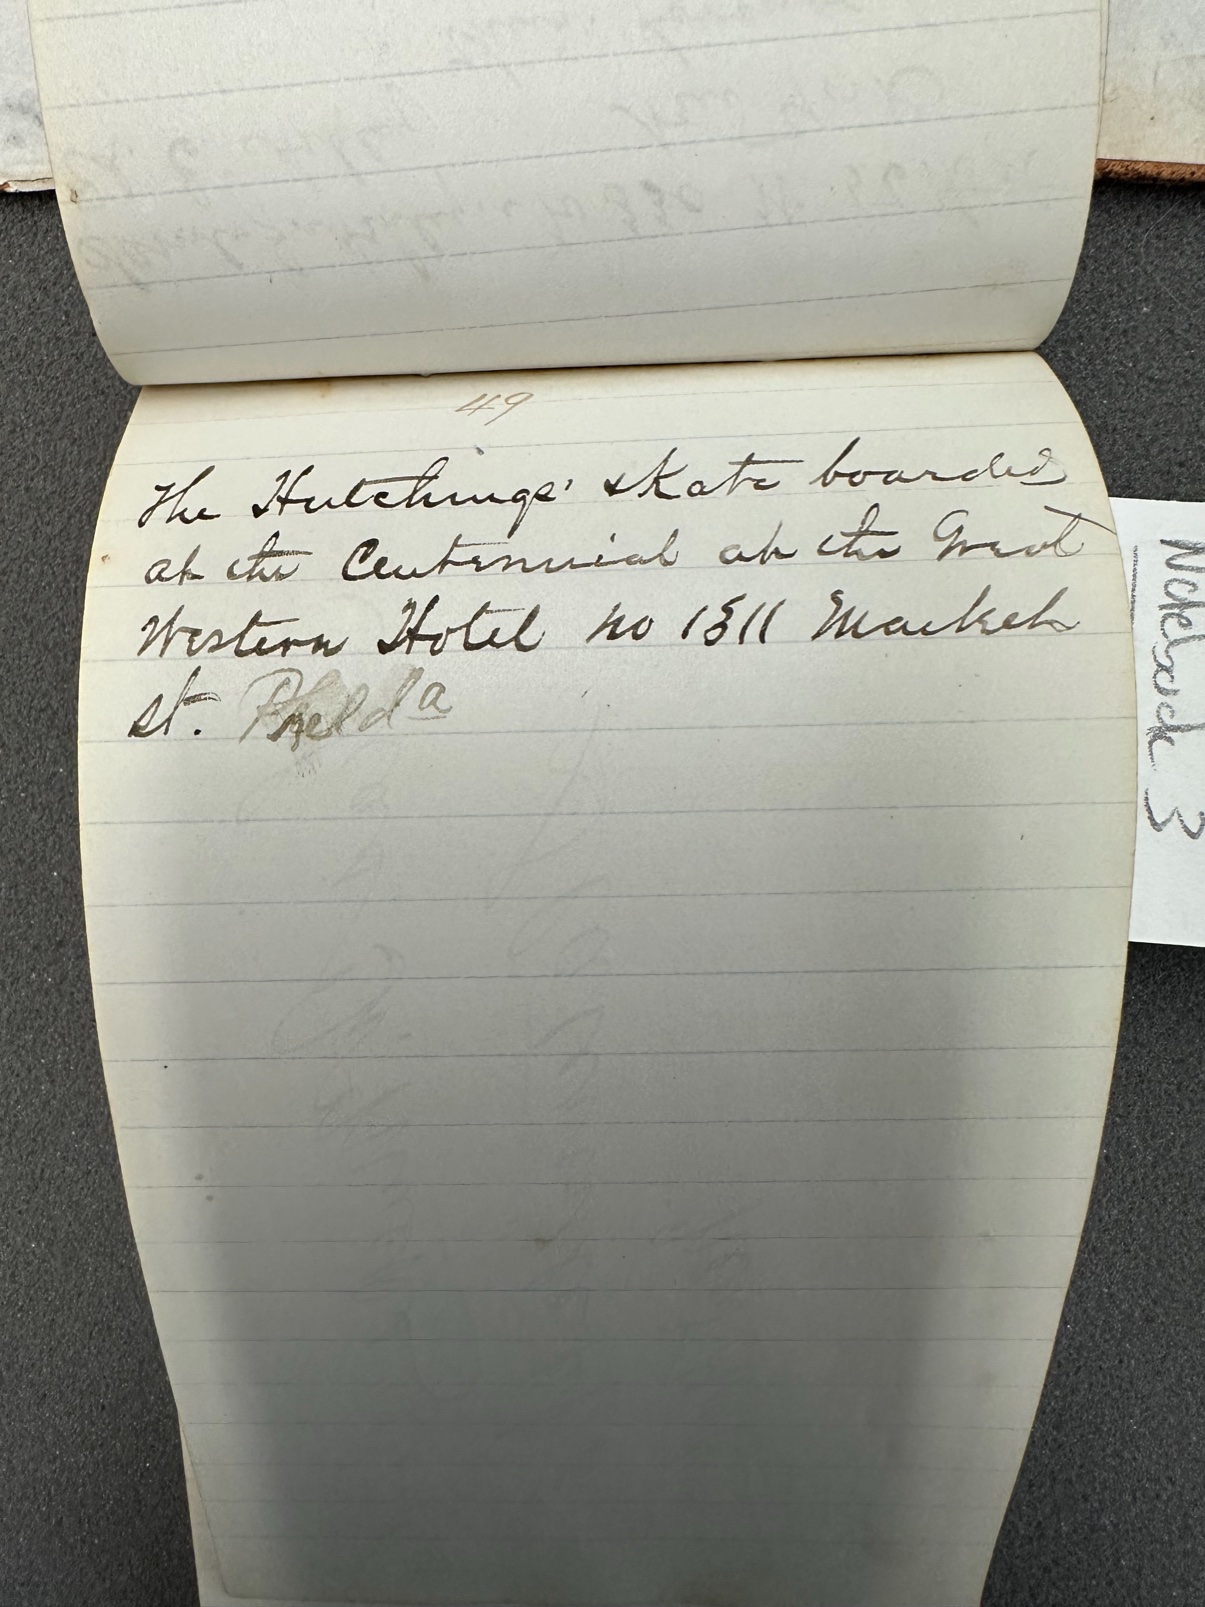 49
The Hutchings' & Kate boarded
at the Centennial at the Great
Western Hotel no 1311 Market
st. Phelda
Notebook 3